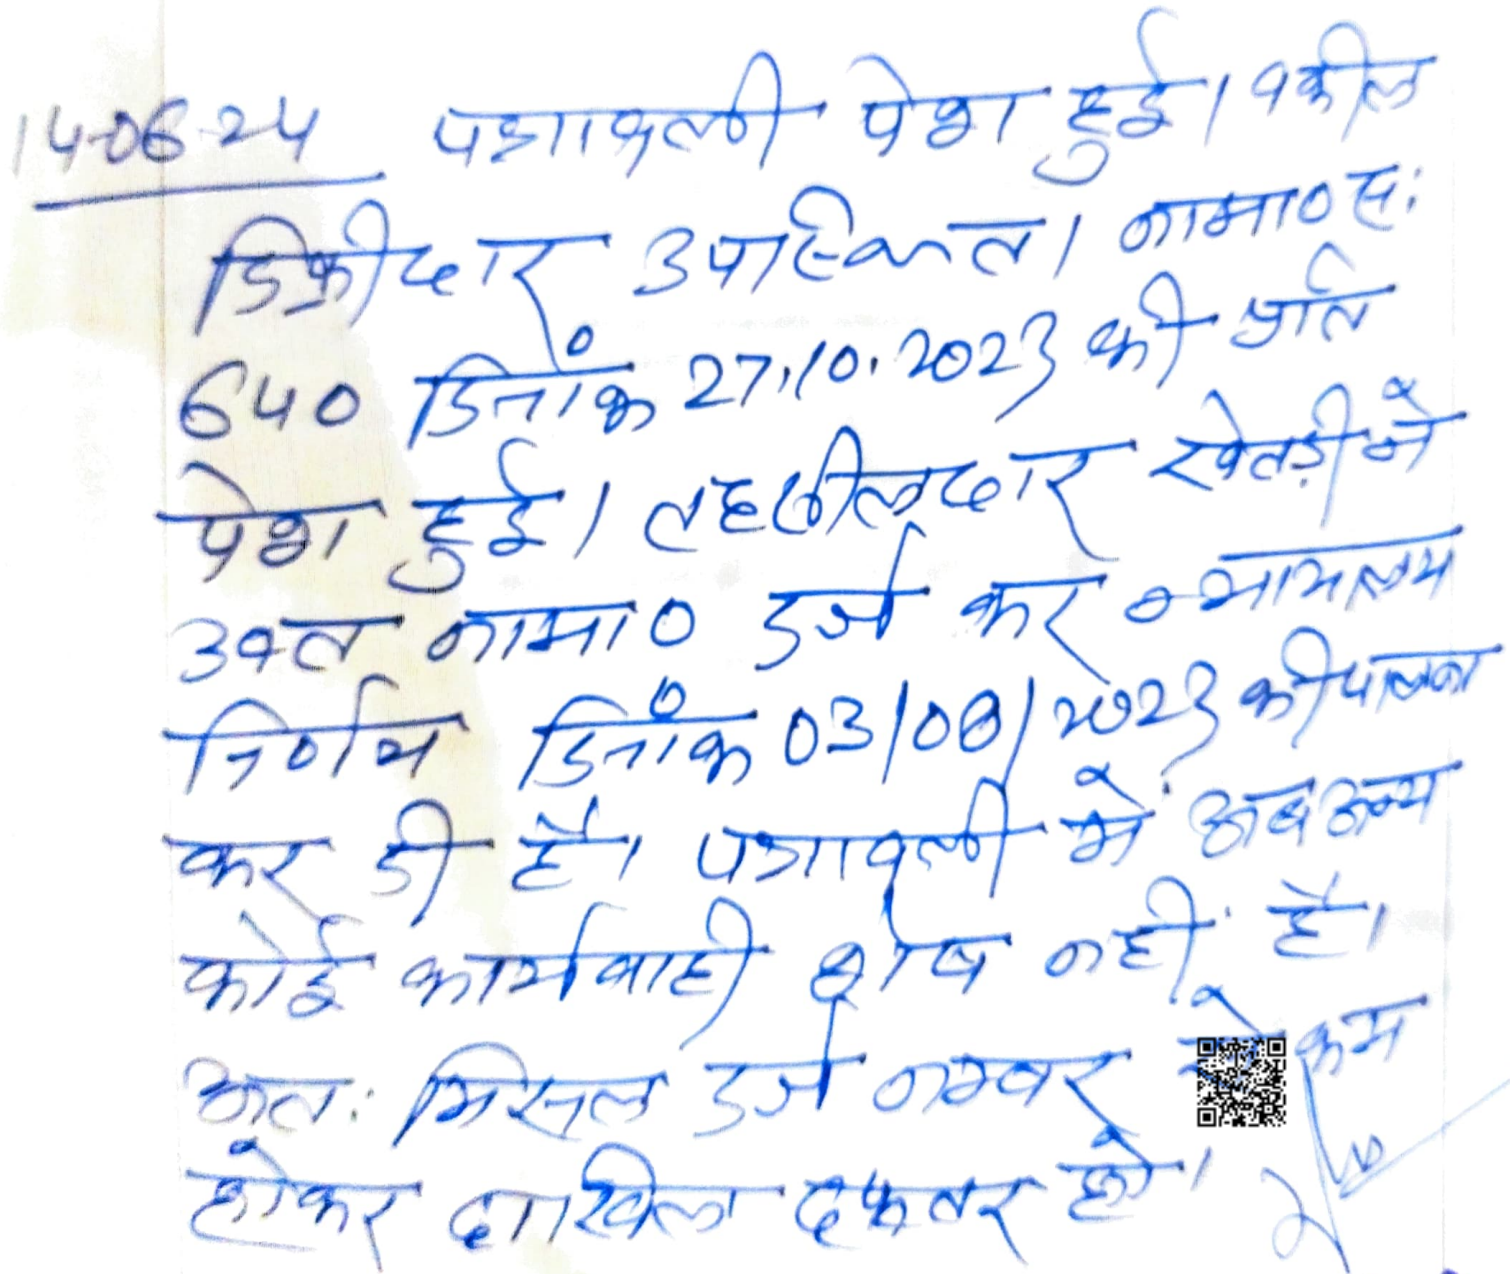 14-06-24 पत्रावली पेश हुई। वकील
डिक्रीदार उपस्थित। नामा० सं:
640 दिनांक 27.10.2023 की प्रति
पेश हुई। तहसीलदार खेतड़ी ने
उक्त नामा० दर्ज कर न्यायालय
निर्णय दिनांक 03/08/2023 की पालना
कर दी है। पत्रावली में अब अन्य
कोई कार्यवाही शेष नहीं है।
अतः मिसल दर्ज नम्बर से कम
होकर दाखिल दफ्तर हो।